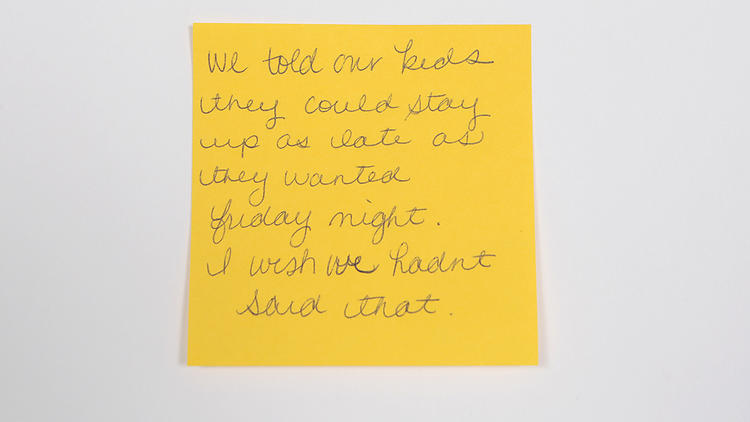 we told our kids
they could stay
up as late as
they wanted
friday night.
I wish we hadnt
said that.